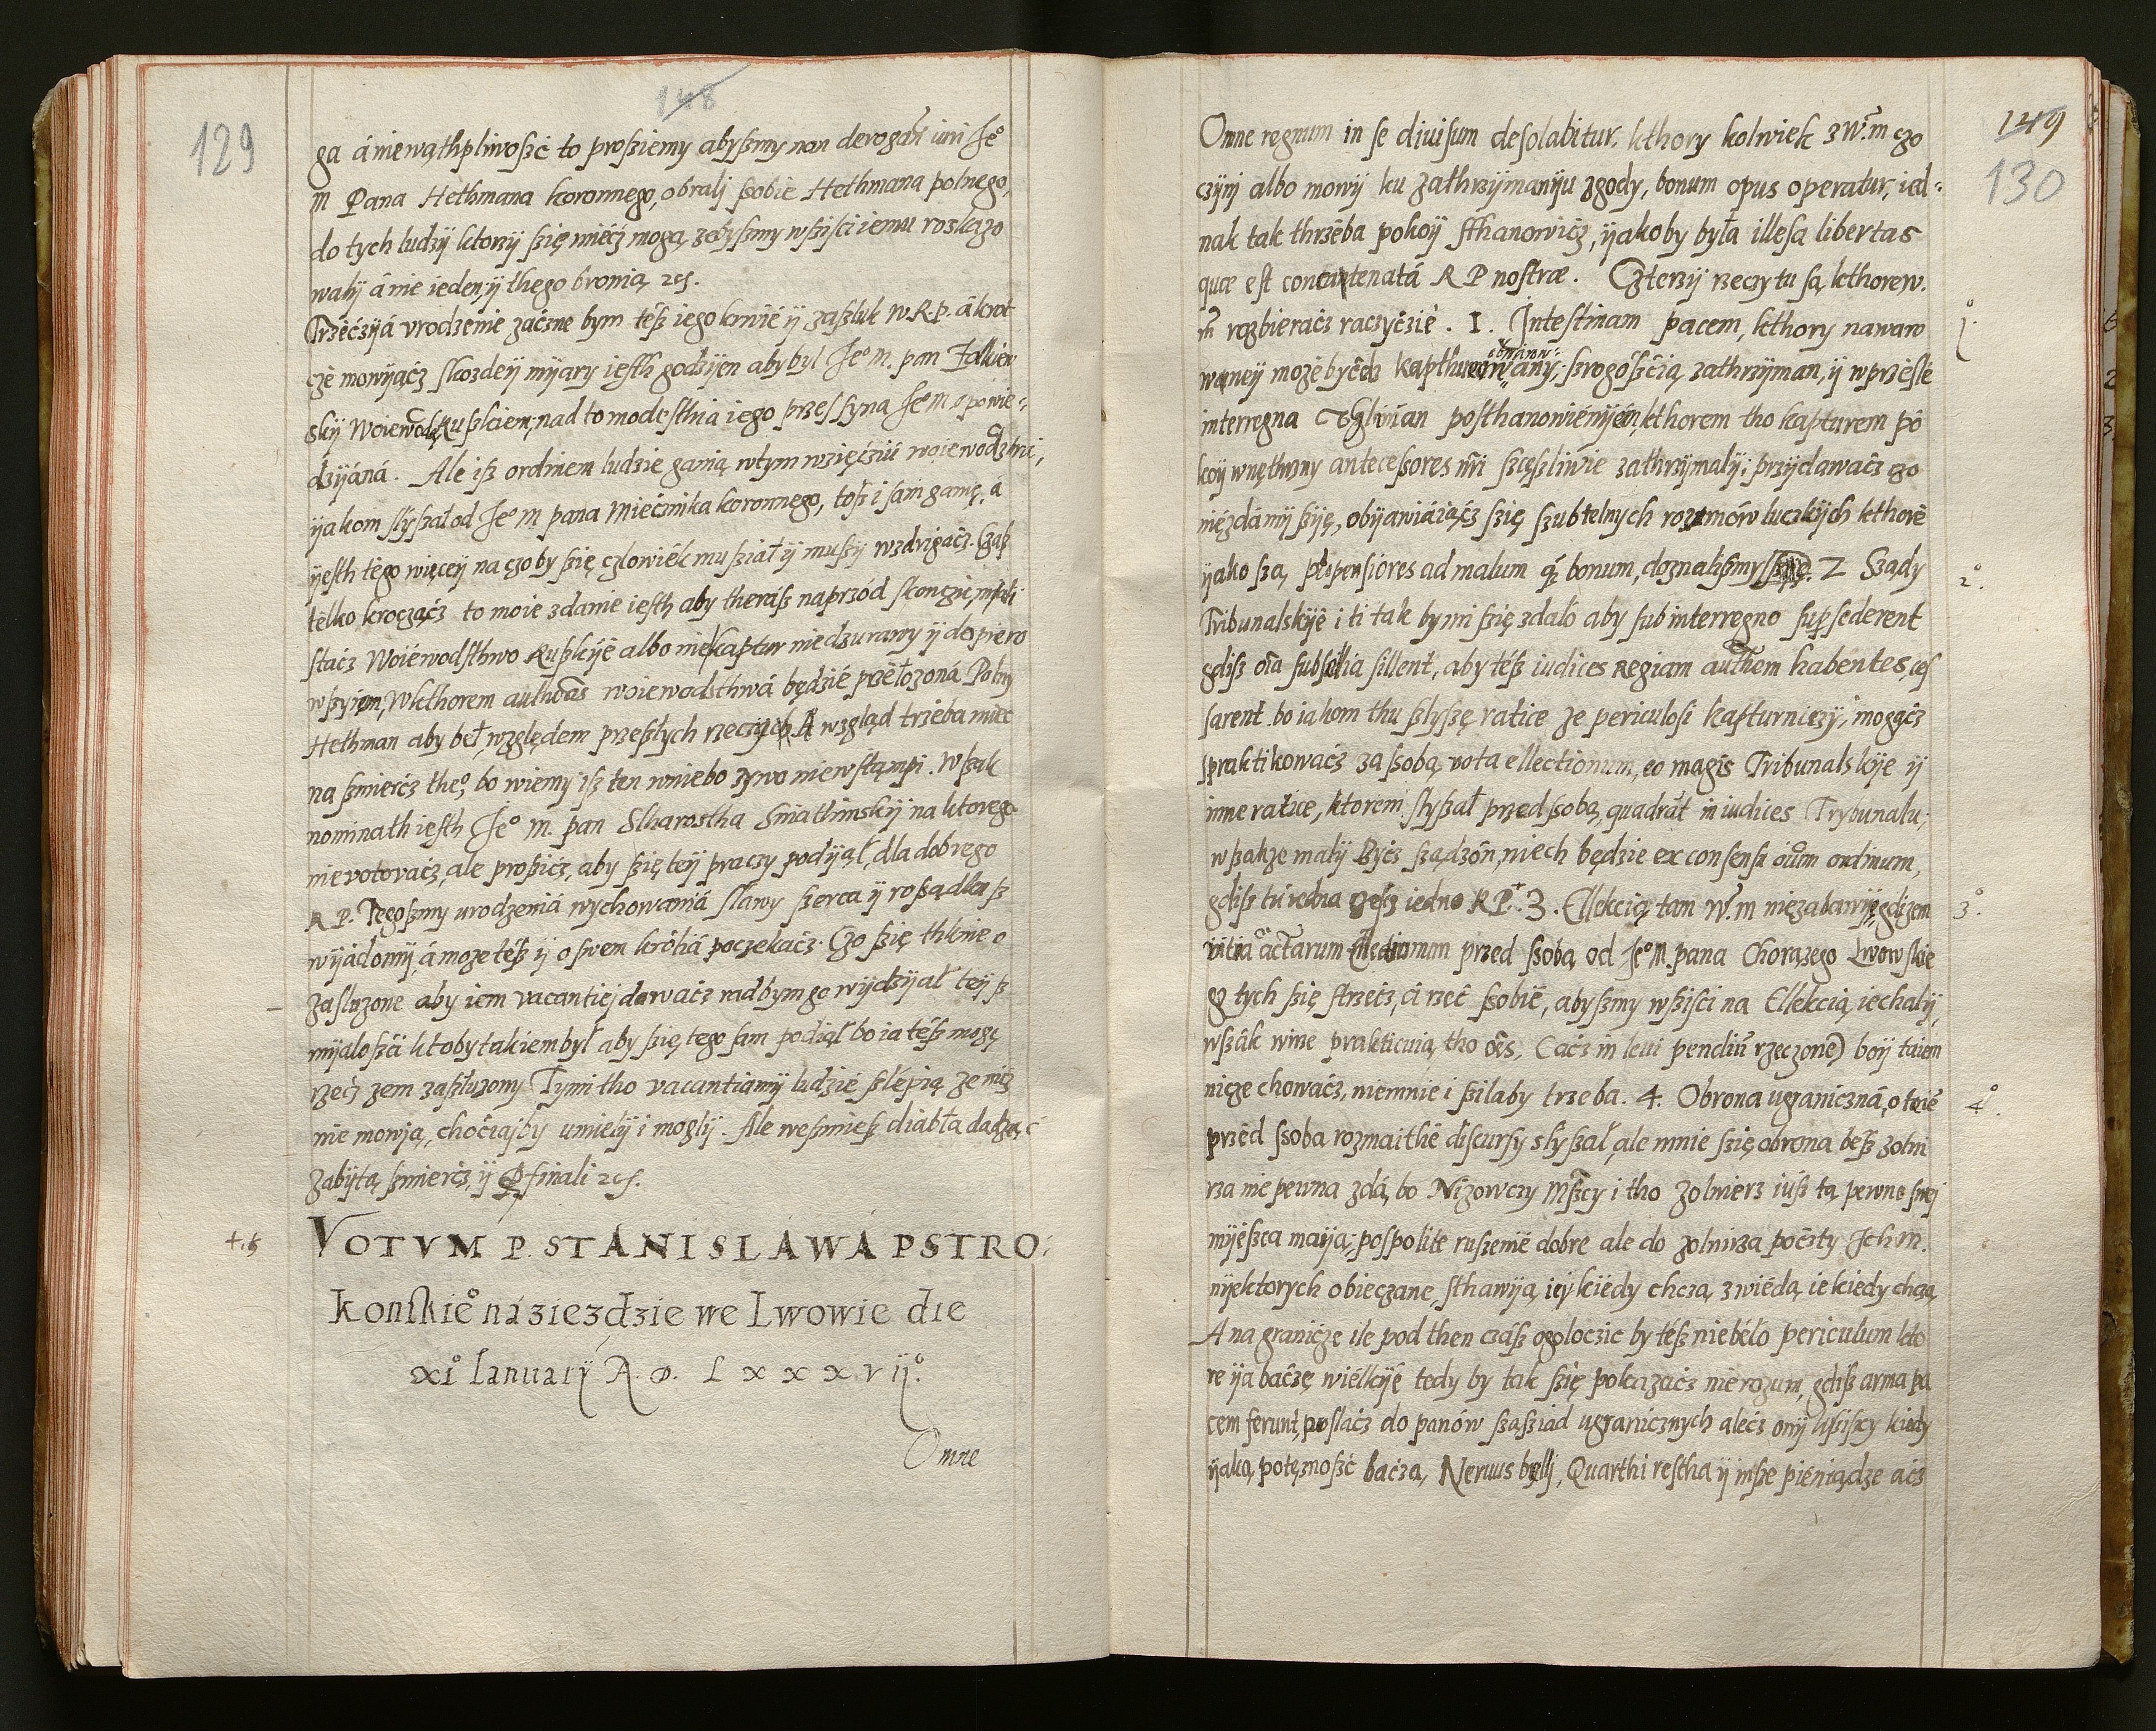 148
129
ga á niewąthpliwosić to prosiemy abyszmy non derogãdi iuri Jeº
m Pana Hethmana koronnego, obralj ssobie Hethmana polnego,
do tych ludzÿ ktorzÿ się miećz mogą zebyszmy wszisci iemu roskązo
walÿ á nie ieden ÿ thego bronią zcs.
Trzećzÿá vrodzenie zaćzne bym téß iego krwié ÿ zasług w R.P. á krot
czè mowÿącz skozdeÿ mÿary iesth godzÿen aby byl Jeº m. pan Zolkiew
skÿ Woiewoda Ruskiem; nad to modestnia iego przes syna Jeº m opowie-
dzÿáná. Ale iß ordinem ludzie ganią wtym wzięćziú woiewodzstwi,
ÿakom slyszał od Jeº m pana Miecznika koronnego, toß i sam ganię, á
ÿesth tego więceÿ na czo by się człowiék musiał ÿ musÿ wzdrigáćz. Czaß
telko krocząćz to moie zdanie iesth aby theráß naprzód skonczic, mieli
stáćz Woiéwodsthwo Ruskÿé albo nie, kaptur niedzurawy ÿ dopiero
wsyiem, w kthorem authõas woiewodsthwá będzié przełozoná Polny
Hethman aby beł względem przesłych rzeczych. A wzgląd trzeba miec
na smierćz theº, bo wiemy iß ten w niebo zywo niewstąmpi. Wszak
nominath iesth Jeº m. pan Stharostha Sniathinskÿ na ktorego
nie votovaćz, ale prosićz, aby się teÿ praczy podÿął, dla dobrego
R P. Tegoszmy urodzeniá wychowaniá sławy szerca ÿ rosądku ß
wÿádomÿ, á moze téß ÿ o swem króthá poczekaćz. Czo się thknie o
zasluzone aby iem vacantiej dawaćz radbym go wÿdzÿał teÿ ß
mÿalosći ktoby takiem był aby się tego sam podiął bo ia téß mogę
rzećz zem zasłuzony Tymi tho vacantiamÿ ludzié slépią ze nicz
nie mowią, choćiajby umielÿ i moglÿ. Ale wesmieß diabła dadzą, ć
zabÿtą smierćz, ÿ p finali zcs.
VOTVM P. STANISLAWÁ PSTRO:
konskieº ná ziezdzie we Lwowie die
xiº Ianuarÿ A. D. LXXXVIJº.
Omne
149
130
Omne regnum in se diuisum desolabitur. kthory kolwiek z W. m czo
czÿnj albo mowÿ ku zathrzÿmanÿu zgody, bonum opus operatur, ied-
nak tak thrzéba pokoÿ sthanowićz, ÿakoby była illesa libertas
quæ est concantenatá R P nostræ. Czterzÿ rzeczy tu są kthore w.
m rozbieraćz raczyćzié. I. Intestinam pacem, kthory na waro
waneÿ moze bÿćdz kapthurowany, srogósśćią zathrzÿman, ÿ w przesłe
interregna postanowiénÿem, kthorem tho kapturem pó
koÿ wnęthrzny antecessores nri sczęsliwie zathrzÿmalÿ; przÿdawaćz czo
niézdá mÿ sÿę, obÿawiáiąćz się subtelnych rozumów luczkÿch kthoré
ÿako są propensiores ad malum q bonum, doznaliszmy. 2 Sądy
Tribunalskÿé i ti tak by mi się zdało aby sub interregno supsederent
gdiß oia subsellia sillent, aby téß iudices Regiam authem habentes, ces
sarent. bo iakom thu slyszę ratice ze periculosi kapturniczÿ, mogąćz
spraktikowaćz za sobą vota ellectionum, eo magis Tribunalskÿe ÿ
inne ratice, ktorem słyszał przed sobą, quadrãt in iudices Trybunału;
wszakze malÿ Byćz sądzón, niech będzie ex consensu oium ordinum,
gdiß tu iedno R P. 3. Ellekcią tam W. m niezabawiÿę gdizem
przed ssobą od Jeº m. pana Chorązego Lwowskie
go tych się strzećz, ći rzeć ssobié, abyszmy wszisci na Ellekcią iechalÿ,
wszák winne prakticuią tho oẽs, Caćz in leui pendiú rzeczone) boÿ taiem
nicze chowaćz, niemnie i siłaby trzeba. 4. Obrona ugraniczná, o toié
przéd ssobą rozmaithé discursy słyszał, ale mnie się obrona beß zolni
rza nie pewna zdá, bo Nizowczy Mscy i tho zolnierz iúß tą pewne swej
mÿészca maÿą; pospolite ruszenié dobre ale do zolnirza póczty Ich m.
nÿektorych obieczane sthawÿą, ieÿ kiédy chczą zwiédą ie kiedy chczą
A na granicze ile pod then czáß ogoloczic by téß niebéło periculum kto
re ÿa baczę wiélkÿé tedy by tak się pokazáćz nié rozum, gdiß arma pa
cem ferunt, posláćz do panów sąsiad ugranicznych alećz onÿ lisiscy kiedy
ÿaką potęznosć baćzą, Neruus bellj, Quarthi restha ÿ insze pieniądze aćz
1º
2º.
3º.
4º.